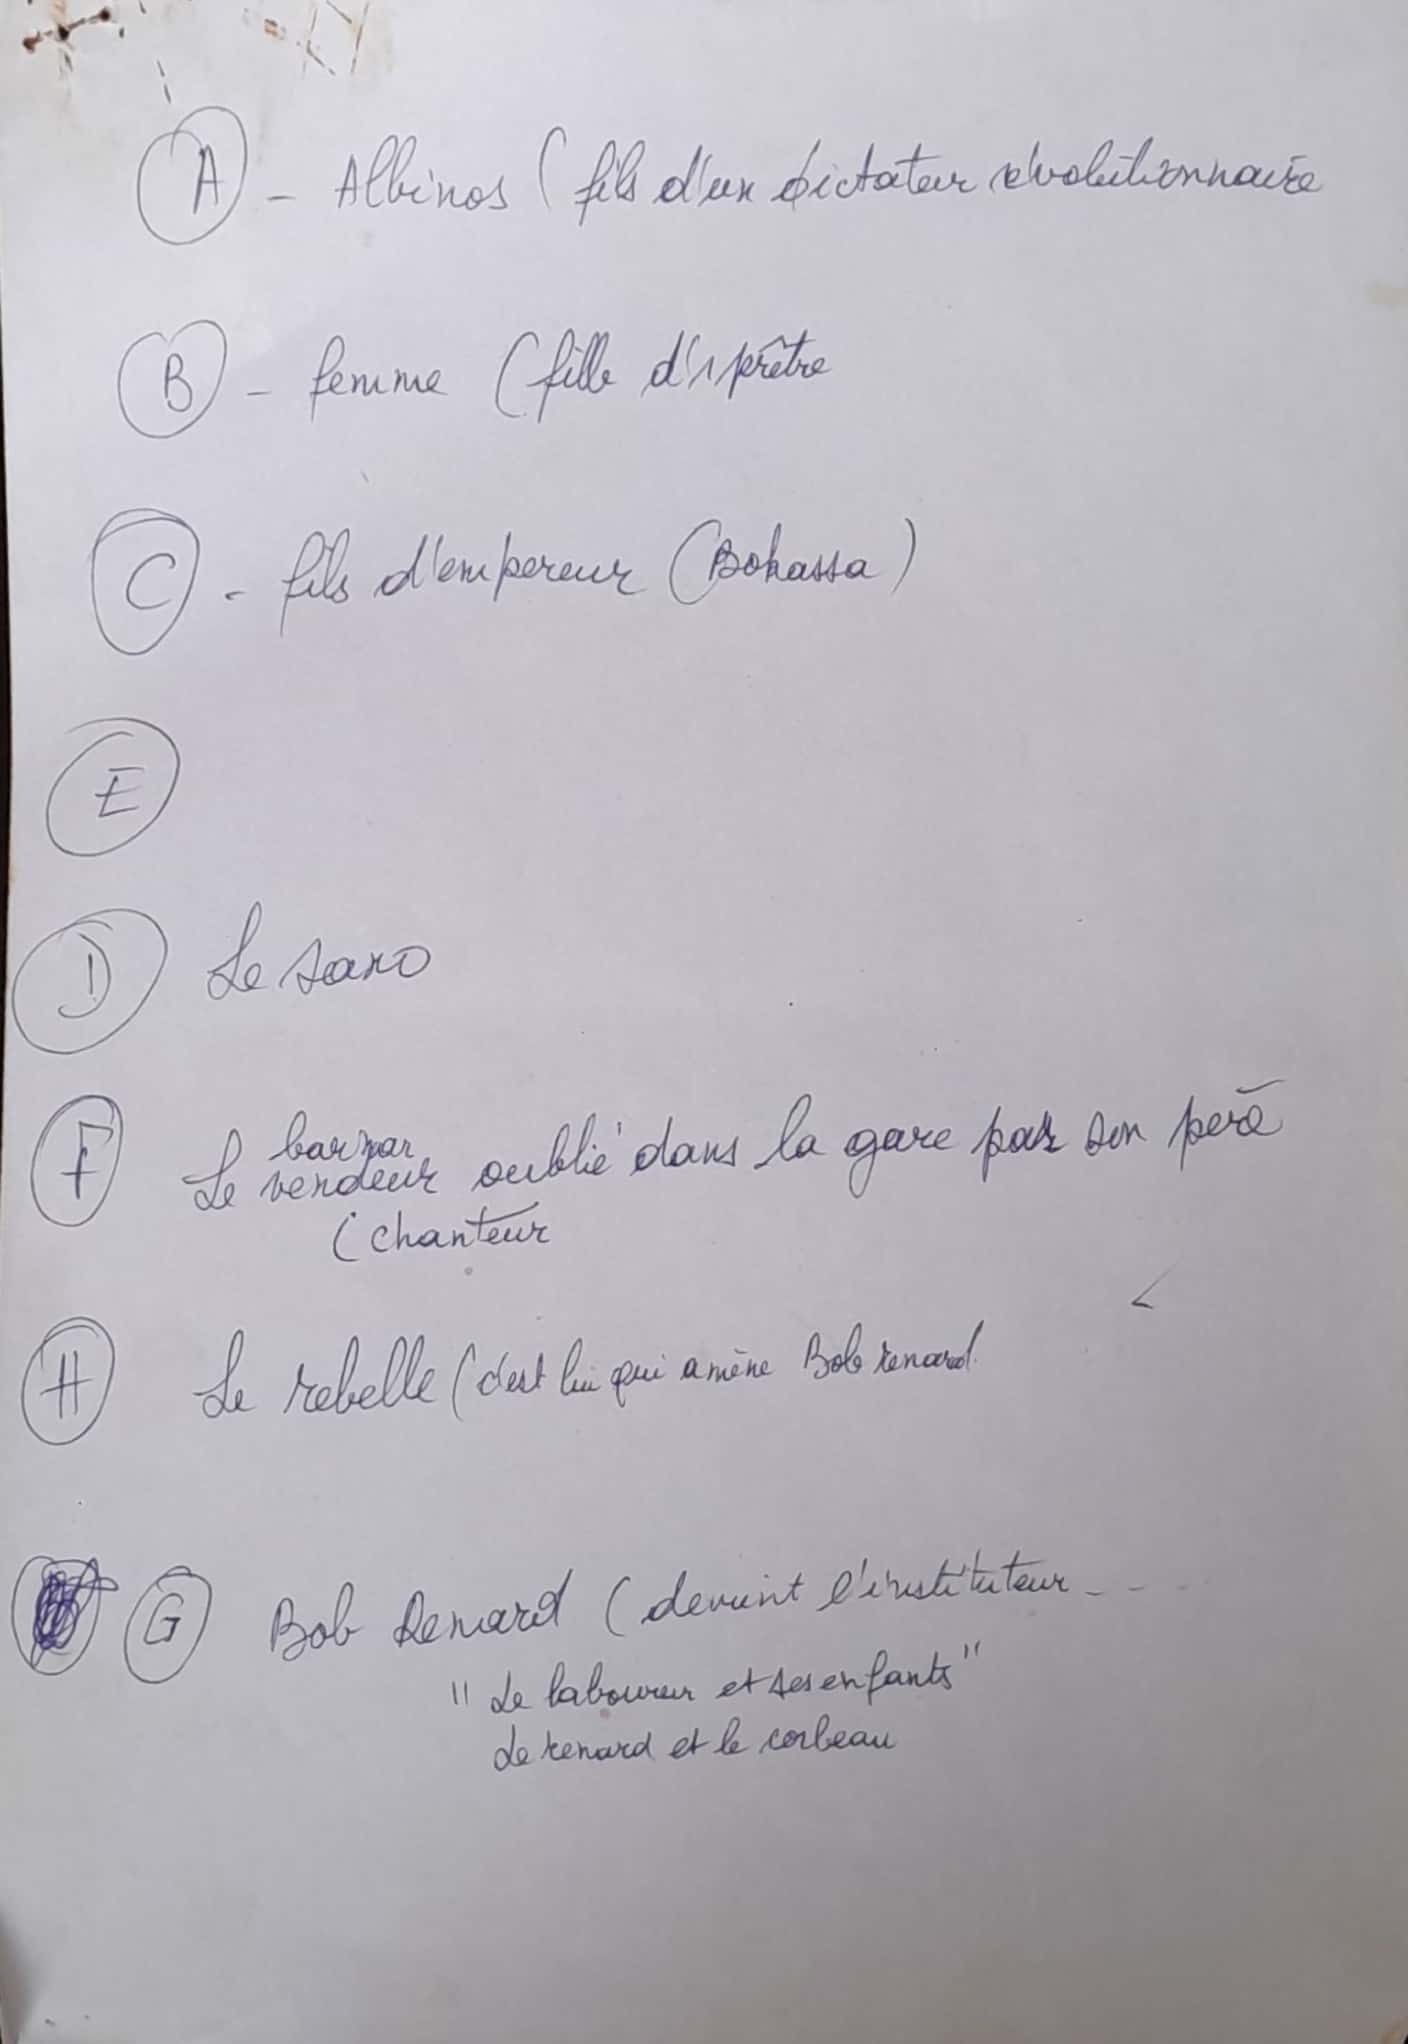 A - Albinos (fils d'un dictateur révolutionnaire
B - femme (fille d'1 prêtre
C - fils d'empereur (Bokassa)
E
D Le saxo
barman
F Le vendeur oublié dans la gare par son père
(chanteur
H Le rebelle (c'est lui qui amène Bob renard
G Bob Renard (devint l'instituteur - - -
"Le laboureur et ses enfants"
Le renard et le corbeau